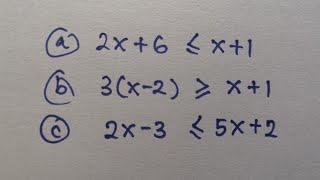 (a) 2x+6 ≤ x+1
(b) 3(x-2) ≥ x+1
(c) 2x-3 ≤ 5x+2